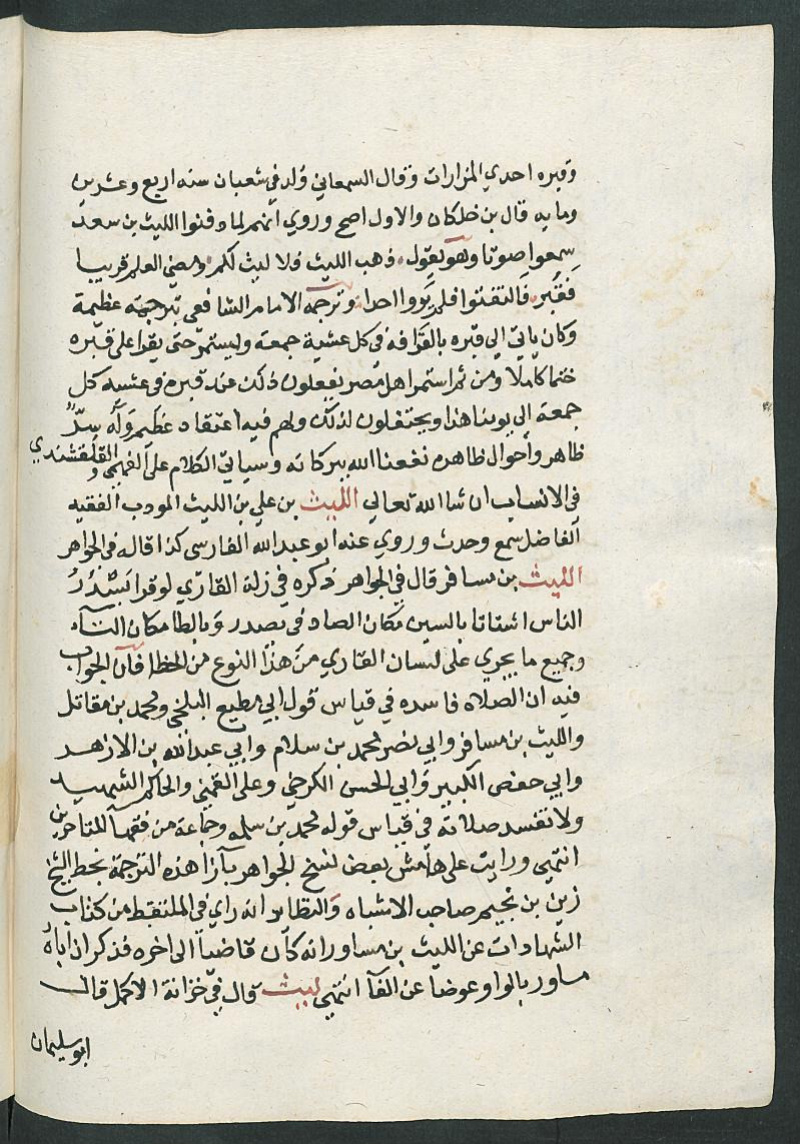 وقبره احدي المزارات وقال السمعاني ولد في شعبان سنه اربع وعشرين
ومايه قال بن خلكان والاول اصح وروي انهم لما دفنوا الليث بن سعد
سمعوا صوتا وهو يقول ذهب الليث فلا ليث لكم ومضي العلم قريبا
فقبر فالتفتوا فلم يروا احدا وترجمه الامام الشافعي بترجمة عظيمة
وكان ياتي الي قبره بالقرافه في كل عشية جمعه ويستمر حتي يقرا علي قبره
ختما كاملا ومن ثم استمر اهل مصر يفعلون ذلك عند قبره في عشيه كل
جمعه الي يومنا هذا ويحتفلون لذلك ولهم فيه اعتقاد عظيم وله سر
ظاهر واحوال ظاهره نفعنا الله ببركاته وسياتي الكلام علي الفهمي و القلقشندي
في الانساب ان شا الله تعالي الليث بن علي بن الليث المودب الفقيه
الفاضل سمع وحدث وروي عنه ابو عبد الله الفارسي كذا قاله في الجواهر
الليث بن مسافر قال في الجواهر ذكره في زلة القاري لو قرا يسدر
الناس اشتاتا بالسين مكان الصاد في يصدر وبالطا مكان التآء
وجميع ما يجري علي لسان القاري من هذا النوع من الخطا فان الجواب
فيه ان الصلاه فاسده في قياس قول ابي مطيع البلخي ومحمد بن مقاتل
والليث بن مسافر وابي نصر محمد بن سلام وابي عبد الله بن الازهد
وابي حفص الكبير وابي الحسن الكرخي وعلي القمي والحاكم الشهيد
ولا تفسد صلاته في قياس قوله محمد بن سلمه وجماعة من فقهآ المتاخرين
انتهي ورايت علي هامش بعض نسخ الجواهر بآزآ هذه الترجمة بخط الشيخ
زين بن نجيم صاحب الاشباه والنظاير انه راي في الملتقط من كتاب
الشهادات عن الليث بن مساور انه كان قاضيا الي اخره فذكر ان اباه
مساور بالواو عوضا عن الفآ انتهي ليث قال في خزانة الاكمل قال
ابو سليمان